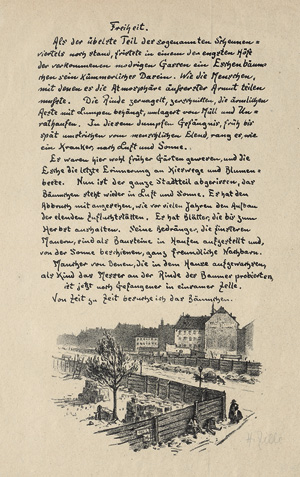 Freiheit.
Als der übelste Teil der sogenannten Scheunen=
viertels noch stand, fristete in einem der engsten Höfe
der verkommenen modrigen Gassen ein Eschenbäum=
chen sein kümmerliches Dasein. Wie die Menschen,
mit denen es die Atmosphäre äusserster Armut teilen
musste. Die Rinde zernagelt, zerschnitten, die ärmlichen
Aeste mit Lumpen behängt, umlagert von Müll und Un=
rathaufen. In diesem dumpfen Gefängnis, früh bis
spät umstrichen von menschlichem Elend, rang es, wie
ein Kranker, nach Luft und Sonne.
Es waren hier wohl früher Gärten gewesen, und die
Esche die letzte Erinnerung an Kieswege und Blumen=
beete. Nun ist der ganze Stadtteil abgerissen, das
Bäumchen steht wieder in Luft und Sonne. Es hat den
Abbruch mit angesehen, wie vor vielen Jahren den Aufbau
der elenden Zufluchtstätten. Er hat Blätter, die bis zum
Herbst aushalten. Seine Bedränger, die finsteren
Mauern, sind als Bausteine in Haufen aufgestellt und,
von der Sonne beschienen, ganz freundliche Nachbarn.
Mancher von denen, die in dem Hause aufgewachsen,
als Kind das Messer an der Rinde des Baumes probierten,
ist jetzt noch Gefangener in einsamer Zelle.
Von Zeit zu Zeit besuche ich das Bäumchen.
H. Zille